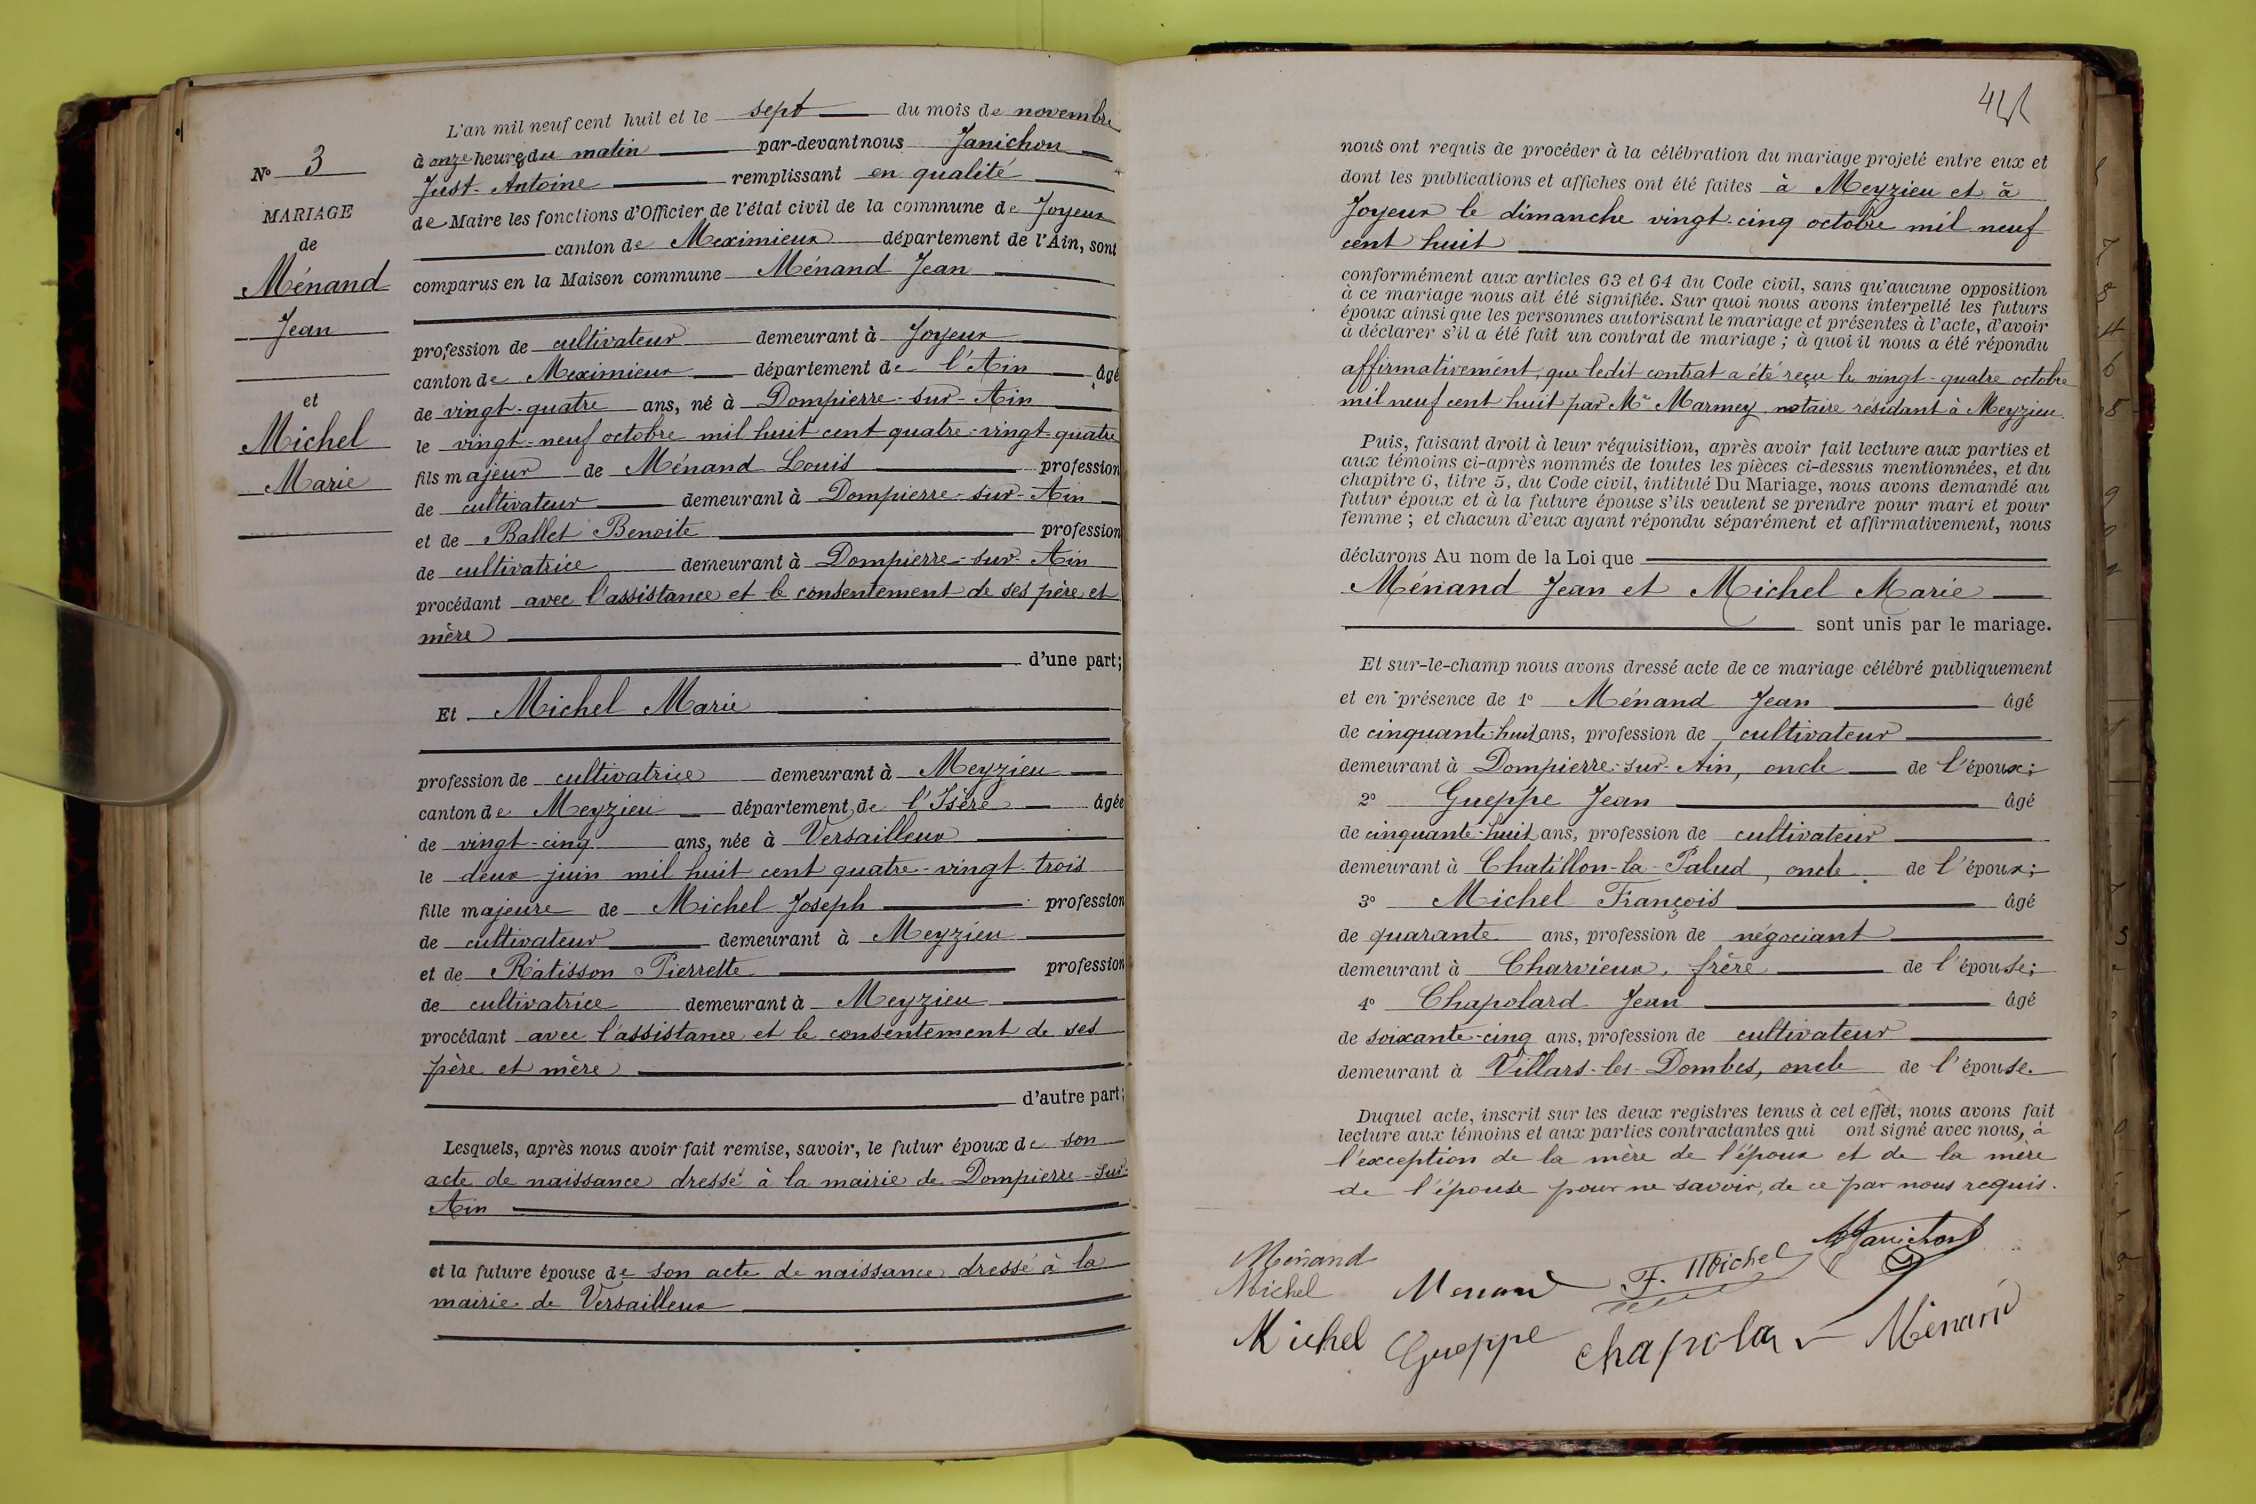 N° 3
MARIAGE
de
Ménand
Jean
et
Michel
Marie
L'an mil neuf cent huit et le sept du mois de novembre
à onze heures du matin par-devant nous Janichon
Just-Antoine remplissant en qualité
de Maire les fonctions d'Officier de l'état civil de la commune de Joyeux
canton de Meximieux département de l'Ain, sont
comparus en la Maison commune Ménand Jean
profession de cultivateur demeurant à Joyeux
canton de Meximieux département de l'Ain âgé
de vingt-quatre ans, né à Dompierre-sur-Ain
le vingt-neuf octobre mil huit cent quatre-vingt-quatre
fils majeur de Ménand Louis profession
de cultivateur demeurant à Dompierre-sur-Ain
et de Ballet Benoite profession
de cultivatrice demeurant à Dompierre-sur-Ain
procédant avec l'assistance et le consentement de ses père et
mère
d'une part;
Et Michel Marie
profession de cultivatrice demeurant à Meyzieu
canton de Meyzieu département de l'Isère âgée
de vingt-cinq ans, née à Versailleux
le deux juin mil huit cent quatre-vingt-trois
fille majeure de Michel Joseph profession
de cultivateur demeurant à Meyzieu
et de Ratisson Pierrette profession
de cultivatrice demeurant à Meyzieu
procédant avec l'assistance et le consentement de ses
père et mère
d'autre part;
Lesquels, après nous avoir fait remise, savoir, le futur époux de son
acte de naissance dressé à la mairie de Dompierre-sur-
Ain
et la future épouse de son acte de naissance dressé à la
mairie de Versailleux
nous ont requis de procéder à la célébration du mariage projeté entre eux et
dont les publications et affiches ont été faites à Meyzieu et à
Joyeux le dimanche vingt-cinq octobre mil neuf
cent huit
conformément aux articles 63 et 64 du Code civil, sans qu'aucune opposition
à ce mariage nous ait été signifiée. Sur quoi nous avons interpellé les futurs
époux ainsi que les personnes autorisant le mariage et présentes à l'acte, d'avoir
à déclarer s'il a été fait un contrat de mariage ; à quoi il nous a été répondu
affirmativement, que ledit contrat a été reçu le vingt-quatre octobre
mil neuf cent huit par Me Marmey notaire résidant à Meyzieu.
Puis, faisant droit à leur réquisition, après avoir fait lecture aux parties et
aux témoins ci-après nommés de toutes les pièces ci-dessus mentionnées, et du
chapitre 6, titre 5, du Code civil, intitulé Du Mariage, nous avons demandé au
futur époux et à la future épouse s'ils veulent se prendre pour mari et pour
femme ; et chacun d'eux ayant répondu séparément et affirmativement, nous
déclarons Au nom de la Loi que
Ménand Jean et Michel Marie
sont unis par le mariage.
Et sur-le-champ nous avons dressé acte de ce mariage célébré publiquement
et en présence de 1° Ménand Jean âgé
de cinquante-huit ans, profession de cultivateur
demeurant à Dompierre-sur-Ain, oncle de l'époux;
2° Gueppe Jean âgé
de cinquante-huit ans, profession de cultivateur
demeurant à Chatillon-la-Palud, oncle de l'époux;
3° Michel François âgé
de quarante ans, profession de négociant
demeurant à Charvieux, frère de l'épouse;
4° Chapolard Jean âgé
de soixante-cinq ans, profession de cultivateur
demeurant à Villars-les-Dombes, oncle de l'épouse.
Duquel acte, inscrit sur les deux registres tenus à cet effet, nous avons fait
lecture aux témoins et aux parties contractantes qui ont signé avec nous, à
l'exception de la mère de l'époux et de la mère
de l'épouse pour ne savoir, de ce par nous requis.
Ménand
Michel Menand F. Michel Janichon
Michel Gueppe chapolar Ménand